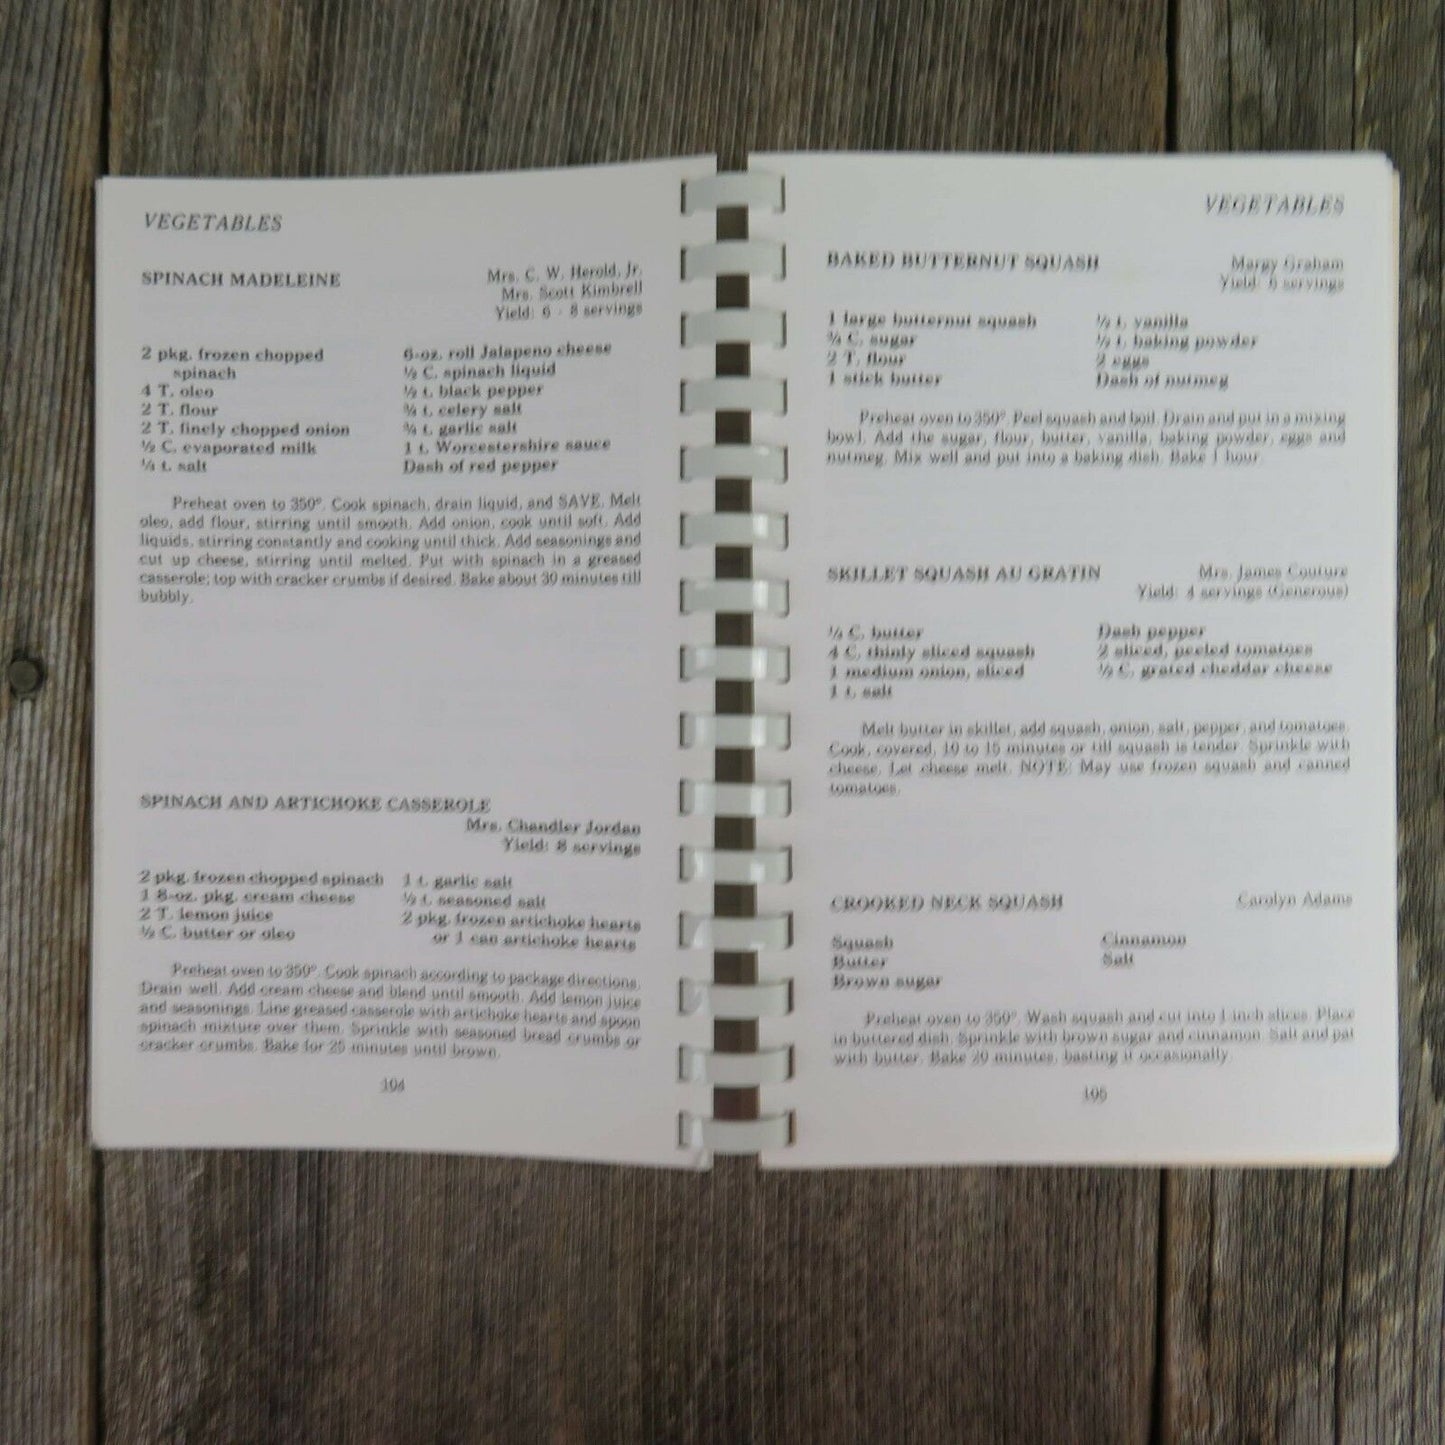 VEGETABLES
SPINACH MADELEINE
Mrs. C. W. Herold, Jr.
Mrs. Scott Kimbrell
Yield: 6 - 8 servings
2 pkg. frozen chopped
spinach
4 T. oleo
2 T. flour
2 T. finely chopped onion
½ C. evaporated milk
¼ t. salt
6-oz. roll Jalapeno cheese
½ C. spinach liquid
½ t. black pepper
¾ t. celery salt
¾ t. garlic salt
1 t. Worcestershire sauce
Dash of red pepper
Preheat oven to 350°. Cook spinach, drain liquid, and SAVE. Melt
oleo, add flour, stirring until smooth. Add onion, cook until soft. Add
liquids, stirring constantly and cooking until thick. Add seasonings and
cut up cheese, stirring until melted. Put with spinach in a greased
casserole; top with cracker crumbs if desired. Bake about 30 minutes till
bubbly.
SPINACH AND ARTICHOKE CASSEROLE
Mrs. Chandler Jordan
Yield: 8 servings
2 pkg. frozen chopped spinach
1 8-oz. pkg. cream cheese
2 T. lemon juice
½ C. butter or oleo
1 t. garlic salt
½ t. seasoned salt
2 pkg. frozen artichoke hearts
or 1 can artichoke hearts
Preheat oven to 350°. Cook spinach according to package directions.
Drain well. Add cream cheese and blend until smooth. Add lemon juice
and seasonings. Line greased casserole with artichoke hearts and spoon
spinach mixture over them. Sprinkle with seasoned bread crumbs or
cracker crumbs. Bake for 25 minutes until brown.
104
VEGETABLES
BAKED BUTTERNUT SQUASH
Margy Graham
Yield: 6 servings
1 large butternut squash
¾ C. sugar
2 T. flour
1 stick butter
½ t. vanilla
½ t. baking powder
2 eggs
Dash of nutmeg
Preheat oven to 350°. Peel squash and boil. Drain and put in a mixing
bowl. Add the sugar, flour, butter, vanilla, baking powder, eggs and
nutmeg. Mix well and put into a baking dish. Bake 1 hour.
SKILLET SQUASH AU GRATIN
Mrs. James Couture
Yield: 4 servings (Generous)
¼ C. butter
4 C. thinly sliced squash
1 medium onion, sliced
1 t. salt
Dash pepper
2 sliced, peeled tomatoes
½ C. grated cheddar cheese
Melt butter in skillet, add squash, onion, salt, pepper, and tomatoes.
Cook, covered, 10 to 15 minutes or till squash is tender. Sprinkle with
cheese. Let cheese melt. NOTE: May use frozen squash and canned
tomatoes.
CROOKED NECK SQUASH
Carolyn Adams
Squash
Butter
Brown sugar
Cinnamon
Salt
Preheat oven to 350°. Wash squash and cut into 1 inch slices. Place
in buttered dish. Sprinkle with brown sugar and cinnamon. Salt and pat
with butter. Bake 20 minutes, basting it occasionally.
105